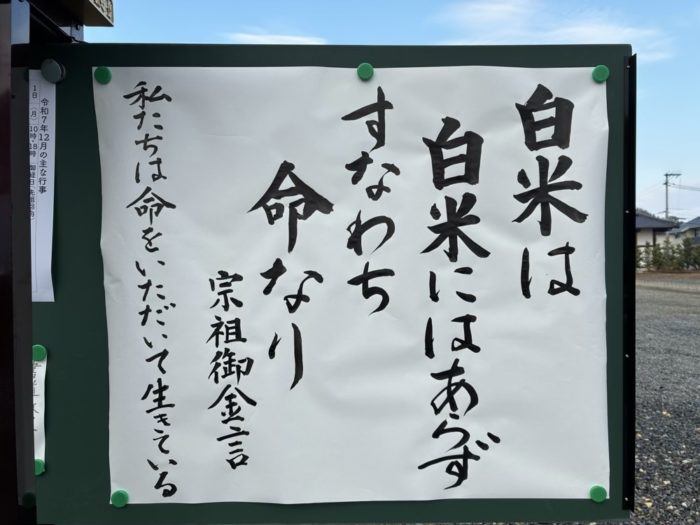 白米は
白米にはあらず
すなわち
命なり
宗祖御金言
私たちは命をいただいて生きている
令和7年12月の主な行事
1日(月)10時・18時